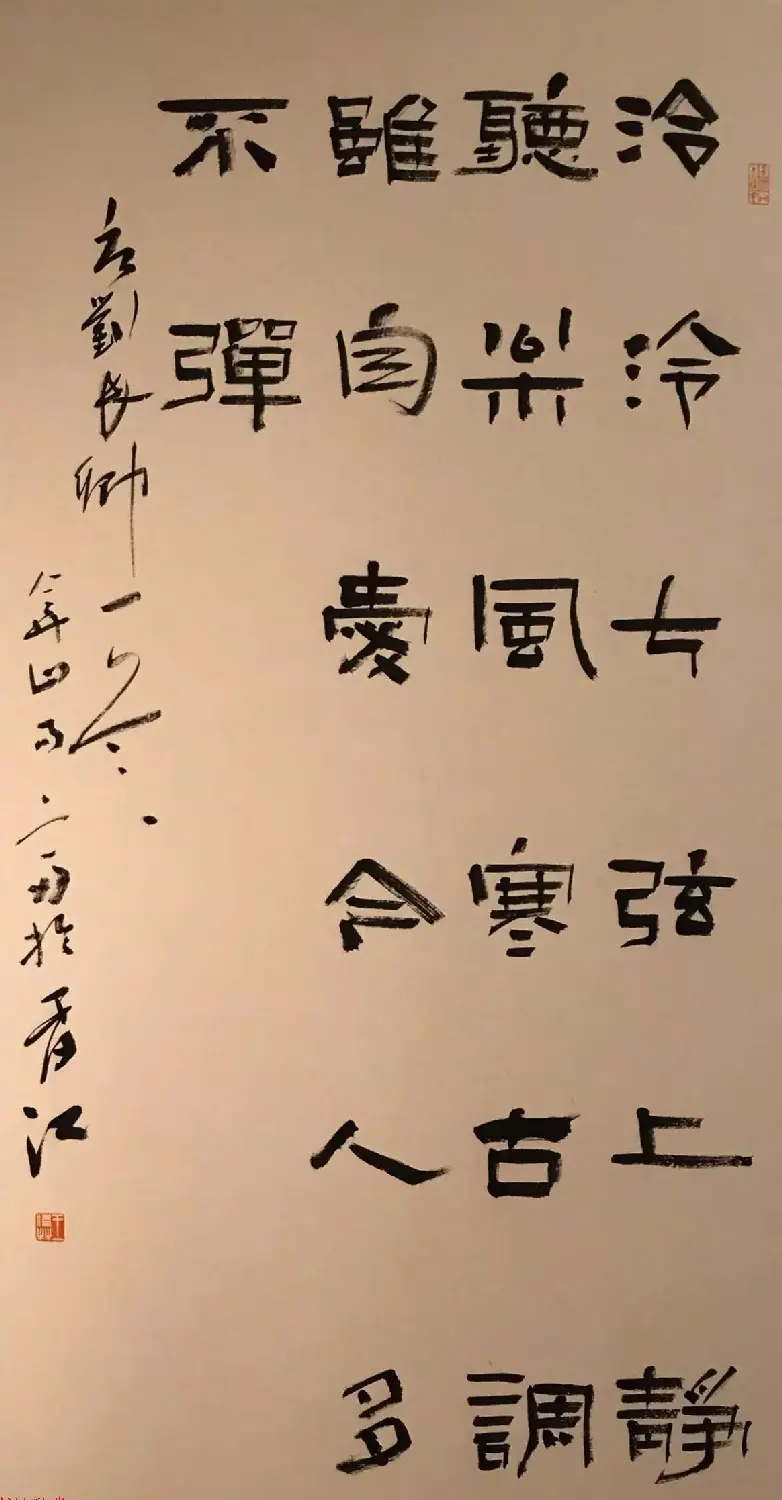 泠泠七弦上靜
聽松風寒古調
雖自愛今人多
不彈
右劉長卿一
山 於香江